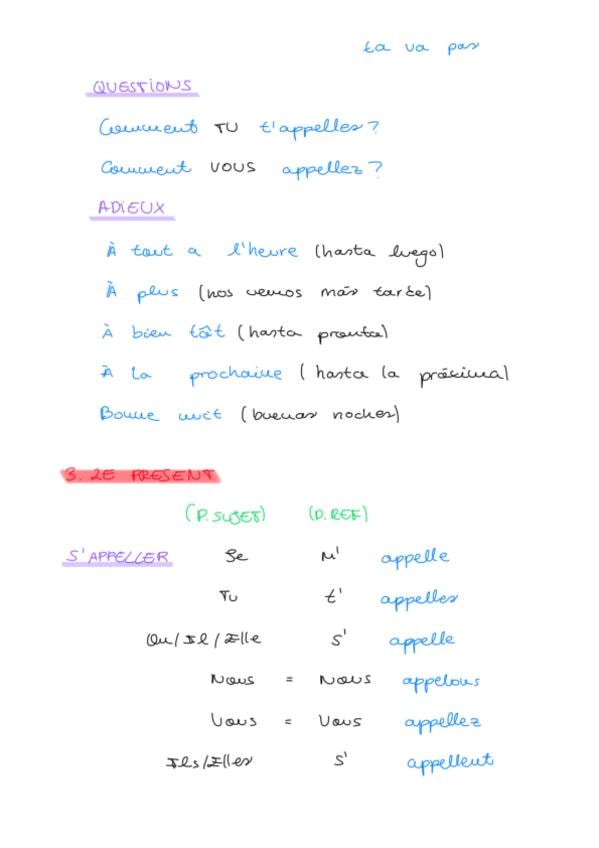 ta va pas
QUESTIONS
Comment TU t'appelles?
Comment VOUS appellez?
ADIEUX
À tout a l'heure (hasta luego)
À plus (nos vemos más tarde)
À bien tôt (hasta pronta)
À la prochaine (hasta la próxima)
Bonne nuit (buenas noches)
3. LE PRESENT
(P. SUJET) (P. REF)
S'APPELLER Je M' appelle
Tu t' appelles
On/Il/Elle s' appelle
Nous = Nous appelons
Vous = Vous appellez
Ils/Elles s' appellent